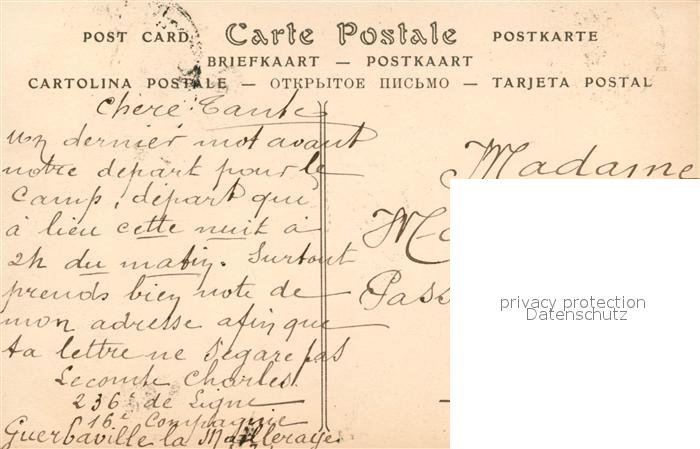 POST CARD Carte Postale POSTKARTE
BRIEFKAART — POSTKAART
CARTOLINA POSTALE — ОТКРЫТОЕ ПИСЬМО — TARJETA POSTAL
Chère Tante
un dernier mot avant
notre départ pour le
Camp, départ qui
à lieu cette nuit à
2h du matin. Surtout
prends bien note de
mon adresse afin que
ta lettre ne s'égare pas
Lecomte Charles
236e de Ligne
16e Compagnie
Guerbaville la Mailleraye
Madame
privacy protection
Datenschutz